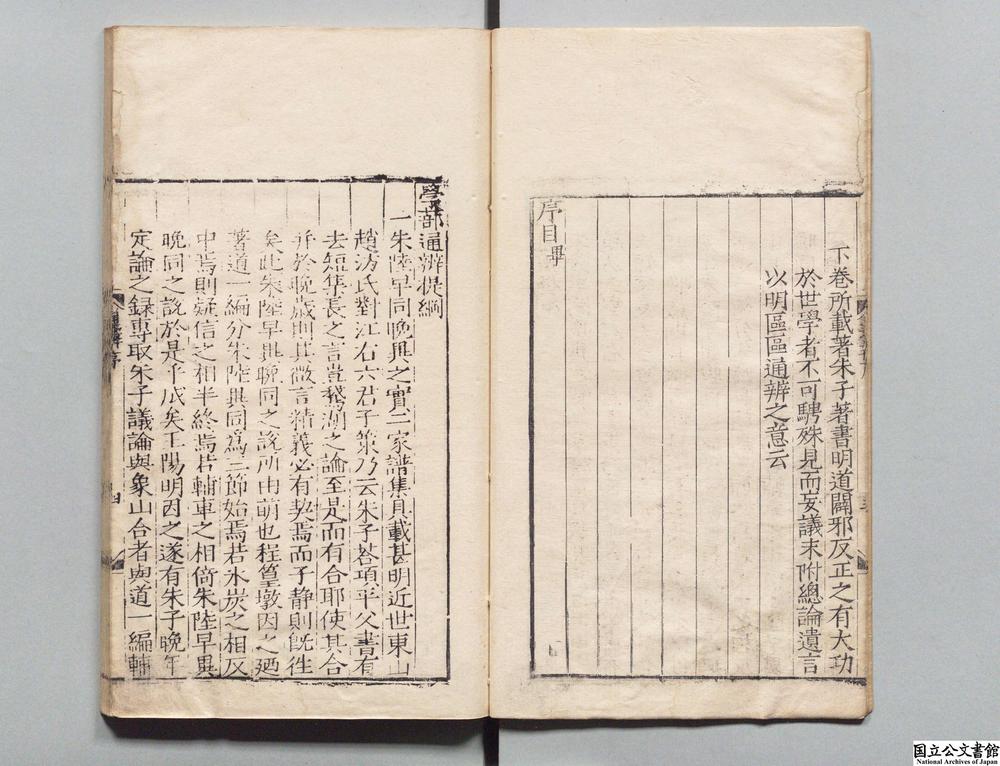 下卷所載著朱子著書明道闢邪反正之有大功
於世學者不可騁殊見而妄議末附總論遺言
以明區區通辨之意云
序目畢
學蔀通辨提綱
一朱陸早同晚異之實二家譜集具載甚明近世東山
趙汸氏對江右六君子策乃云朱子荅項平父書有
去短集長之言豈鵝湖之論至是而有合耶使其合
并於晚歲則其微言精義必有契焉而子静則既徃
矣此朱陸早異晚同之説所由萌也程篁墩因之廼
著道一編分朱陸異同爲三節始焉若氷炭之相反
中焉則疑信之相半終焉若輔車之相倚朱陸早異
晚同之説於是乎成矣王陽明因之遂有朱子晚年
定論之録專取朱子議論與象山合者與道一編輔
四
国立公文書館
National Archives of Japan